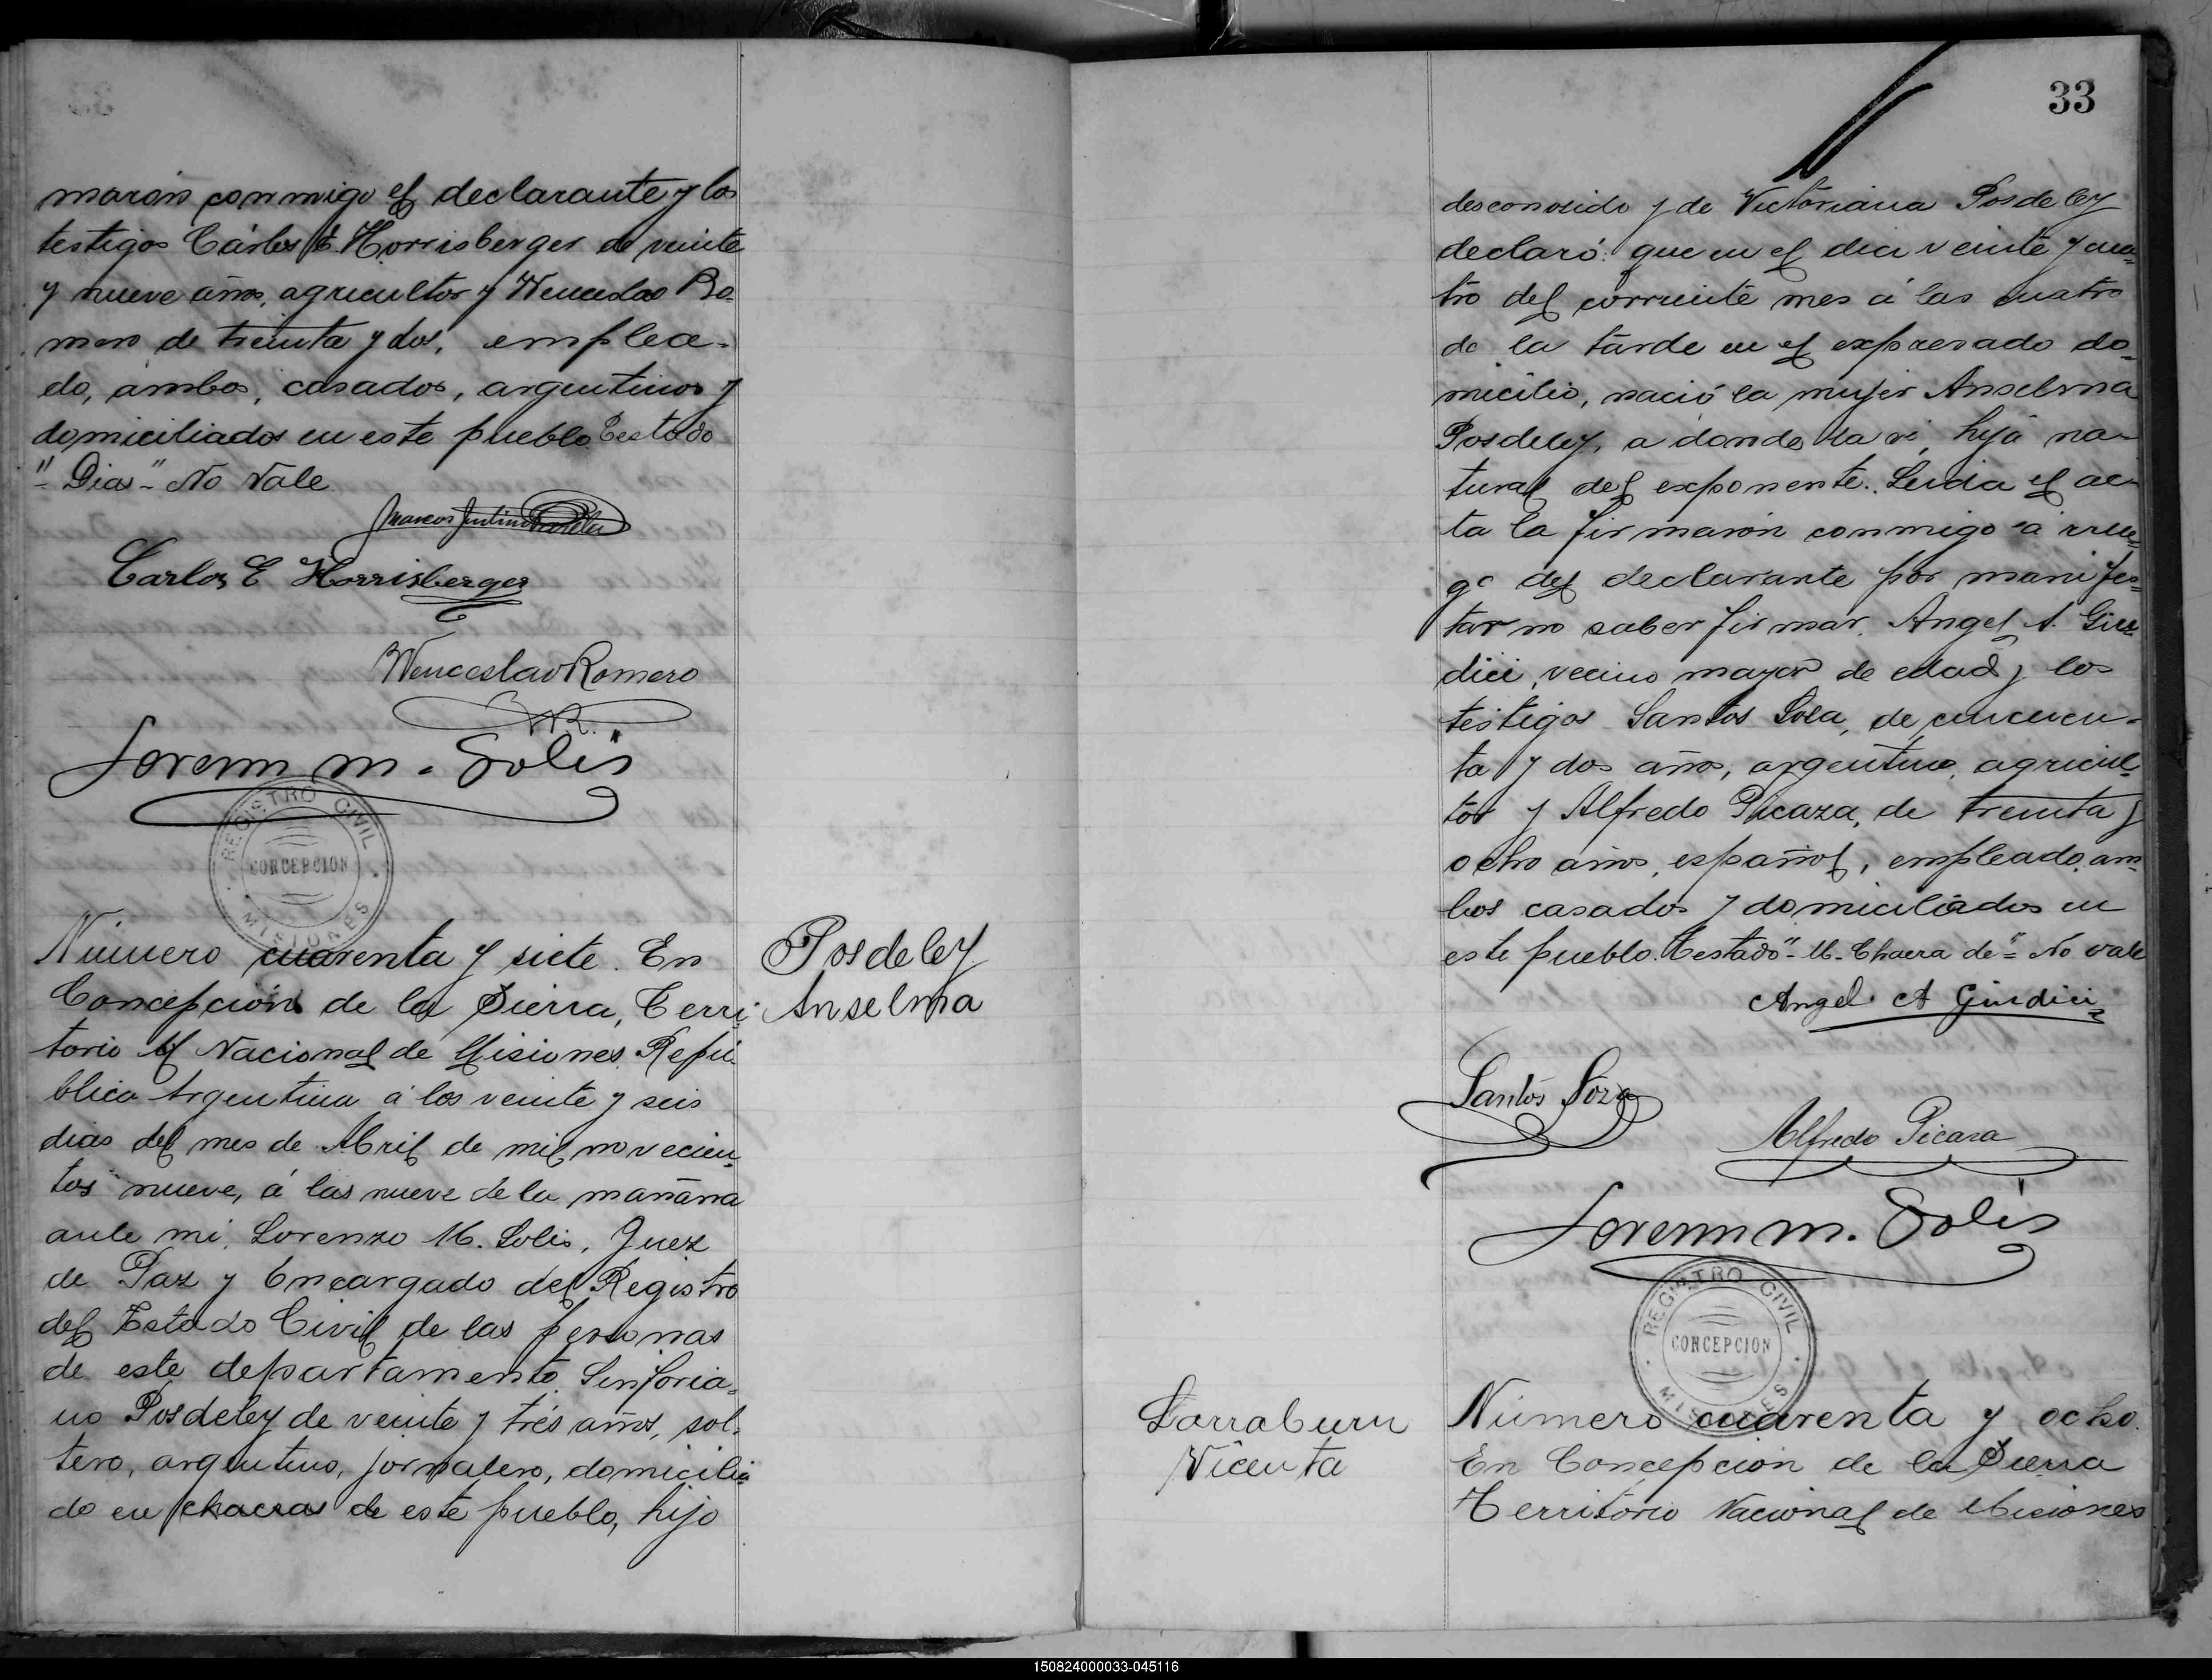 maron conmigo el declarante y los
testigos Cárlos E. Horrisberger de veinte
y nueve años, agricultor y Wenceslao Ro-
mero de treinta y dos, emplea-
do, ambos, casados, argentinos y
domiciliados en este pueblo. Testado
"Dias" No Vale
Marcos Justino
Carlos E Horrisberger
Wenceslao Romero
WR.
Lorenzo M. Solis
REGISTRO CIVIL
CONCEPCION
MISIONES
Número cuarenta y siete. En
Concepción de la Sierra, Terri-
torio M Nacional de Misiones, Repú-
blica Argentina á los veinte y seis
dias del mes de Abril de mil novecien-
tos nueve, á las nueve de la mañana
ante mi, Lorenzo M. Solis, Juez
de Paz y Encargado del Registro
del Estado Civil de las personas
de este departamento Sinforia-
no Posdeley de veinte y trés años, sol-
tero, argentino, jornalero, domicilia-
do en chacras de este pueblo, hijo
Posdeley
Anselma
33
desconosido y de Victoriana Posdeley
declaró: que en el dia veinte y cua-
tro del corriente mes á las cuatro
de la tarde en el expresado do-
micilio, nació la mujer Anselma
Posdeley, a donde la vi, hija na-
tural del exponente. Leida el ac-
ta la firmaron conmigo á rrue-
go del declarante por manifes-
tar no saber firmar, Angel A. Giu-
dici, vecino mayor de edad y los
testigos Santos Sosa, de cincuen-
ta y dos años, argentino, agricul-
tor y Alfredo Picaza, de treinta y
ocho años, español, empleado, am-
bos casados y domiciliados en
este pueblo. Testado "M. Chacra de" No vale
Angel A Giudici
Santos Soza
Alfredo Picaza
Lorenzo M. Solis
REGISTRO CIVIL
CONCEPCION
MISIONES
Larraburu
Vicenta
Número cuarenta y ocho.
En Concepcion de la Sierra
Territorio Nacional de Misiones
150824000033-045116